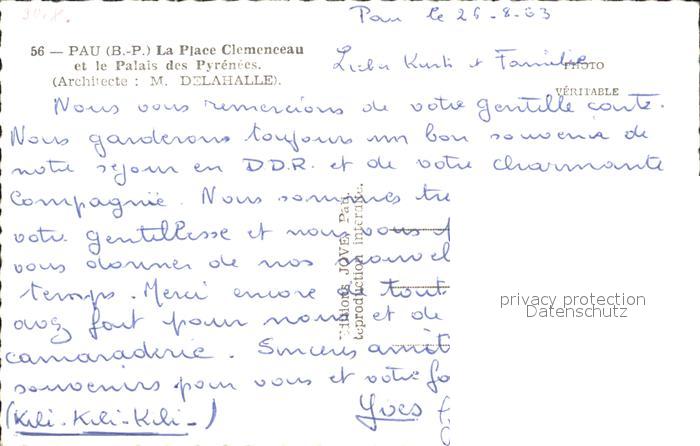 Pau le 26-8-63
56 — PAU (B.-P.) La Place Clemenceau
et le Palais des Pyrénées.
(Architecte : M. DELAHALLE).
Kurti et Famille
PHOTO
VÉRITABLE
Nous vous remercions de votre gentille carte.
Nous garderons toujours un bon souvenir de
notre séjour en D.D.R. et de votre charmante
Compagnie. Nous sommes
votre gentillesse et nous vous
vous donner de nos nouvel
temps. Merci encore de tout
avez fait pour nous et de
camaraderie. Sincères amit
souvenirs pour vous et votre fa
(Kili-Kili-Kili-)
Yves
Editions JOVE, Pau
reproduction interdite.
privacy protection
Datenschutz